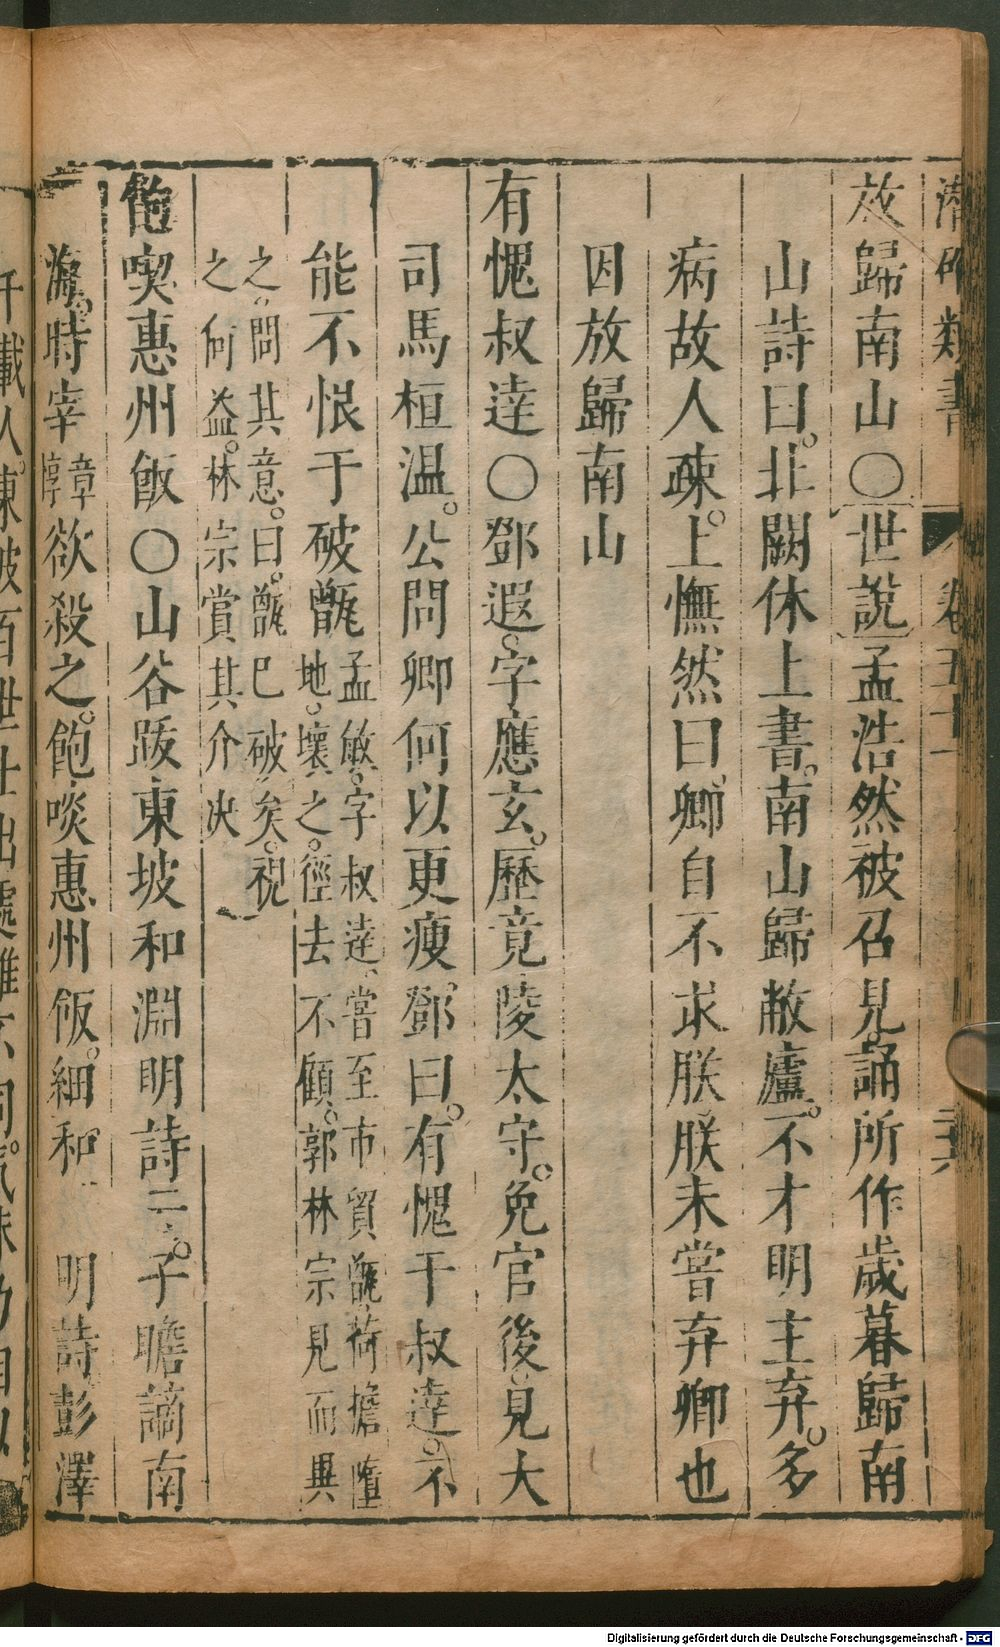 類書 卷五十一 二十六
放歸南山○世說孟浩然被召見。誦所作歲暮歸南
山詩曰。北闕休上書。南山歸敝廬。不才明主弃。多
病故人疎。上憮然曰。卿自不求朕朕未嘗弃卿也
因放歸南山
有愧叔達○鄧遐。字應玄。歷竟陵太守。免官後。見大
司馬桓温。公問卿何以更瘦。鄧曰。有愧于叔達。不
能不恨于破甑孟敏。字叔達。嘗至市貿甑荷擔墮
地。壞之。徑去不顧。郭林宗見而異
之。問其意。曰。甑巳破矣。視
之何益。林宗賞其介决
飽喫惠州飯○山谷跋東坡和淵明詩云。子瞻謫南
海。時宰章惇欲殺之。飽啖惠州飯。細和 明詩彭澤
千載人。東坡百世士出處雖不同。氣味乃相似
Digitalisierung gefördert durch die Deutsche Forschungsgemeinschaft - DFG